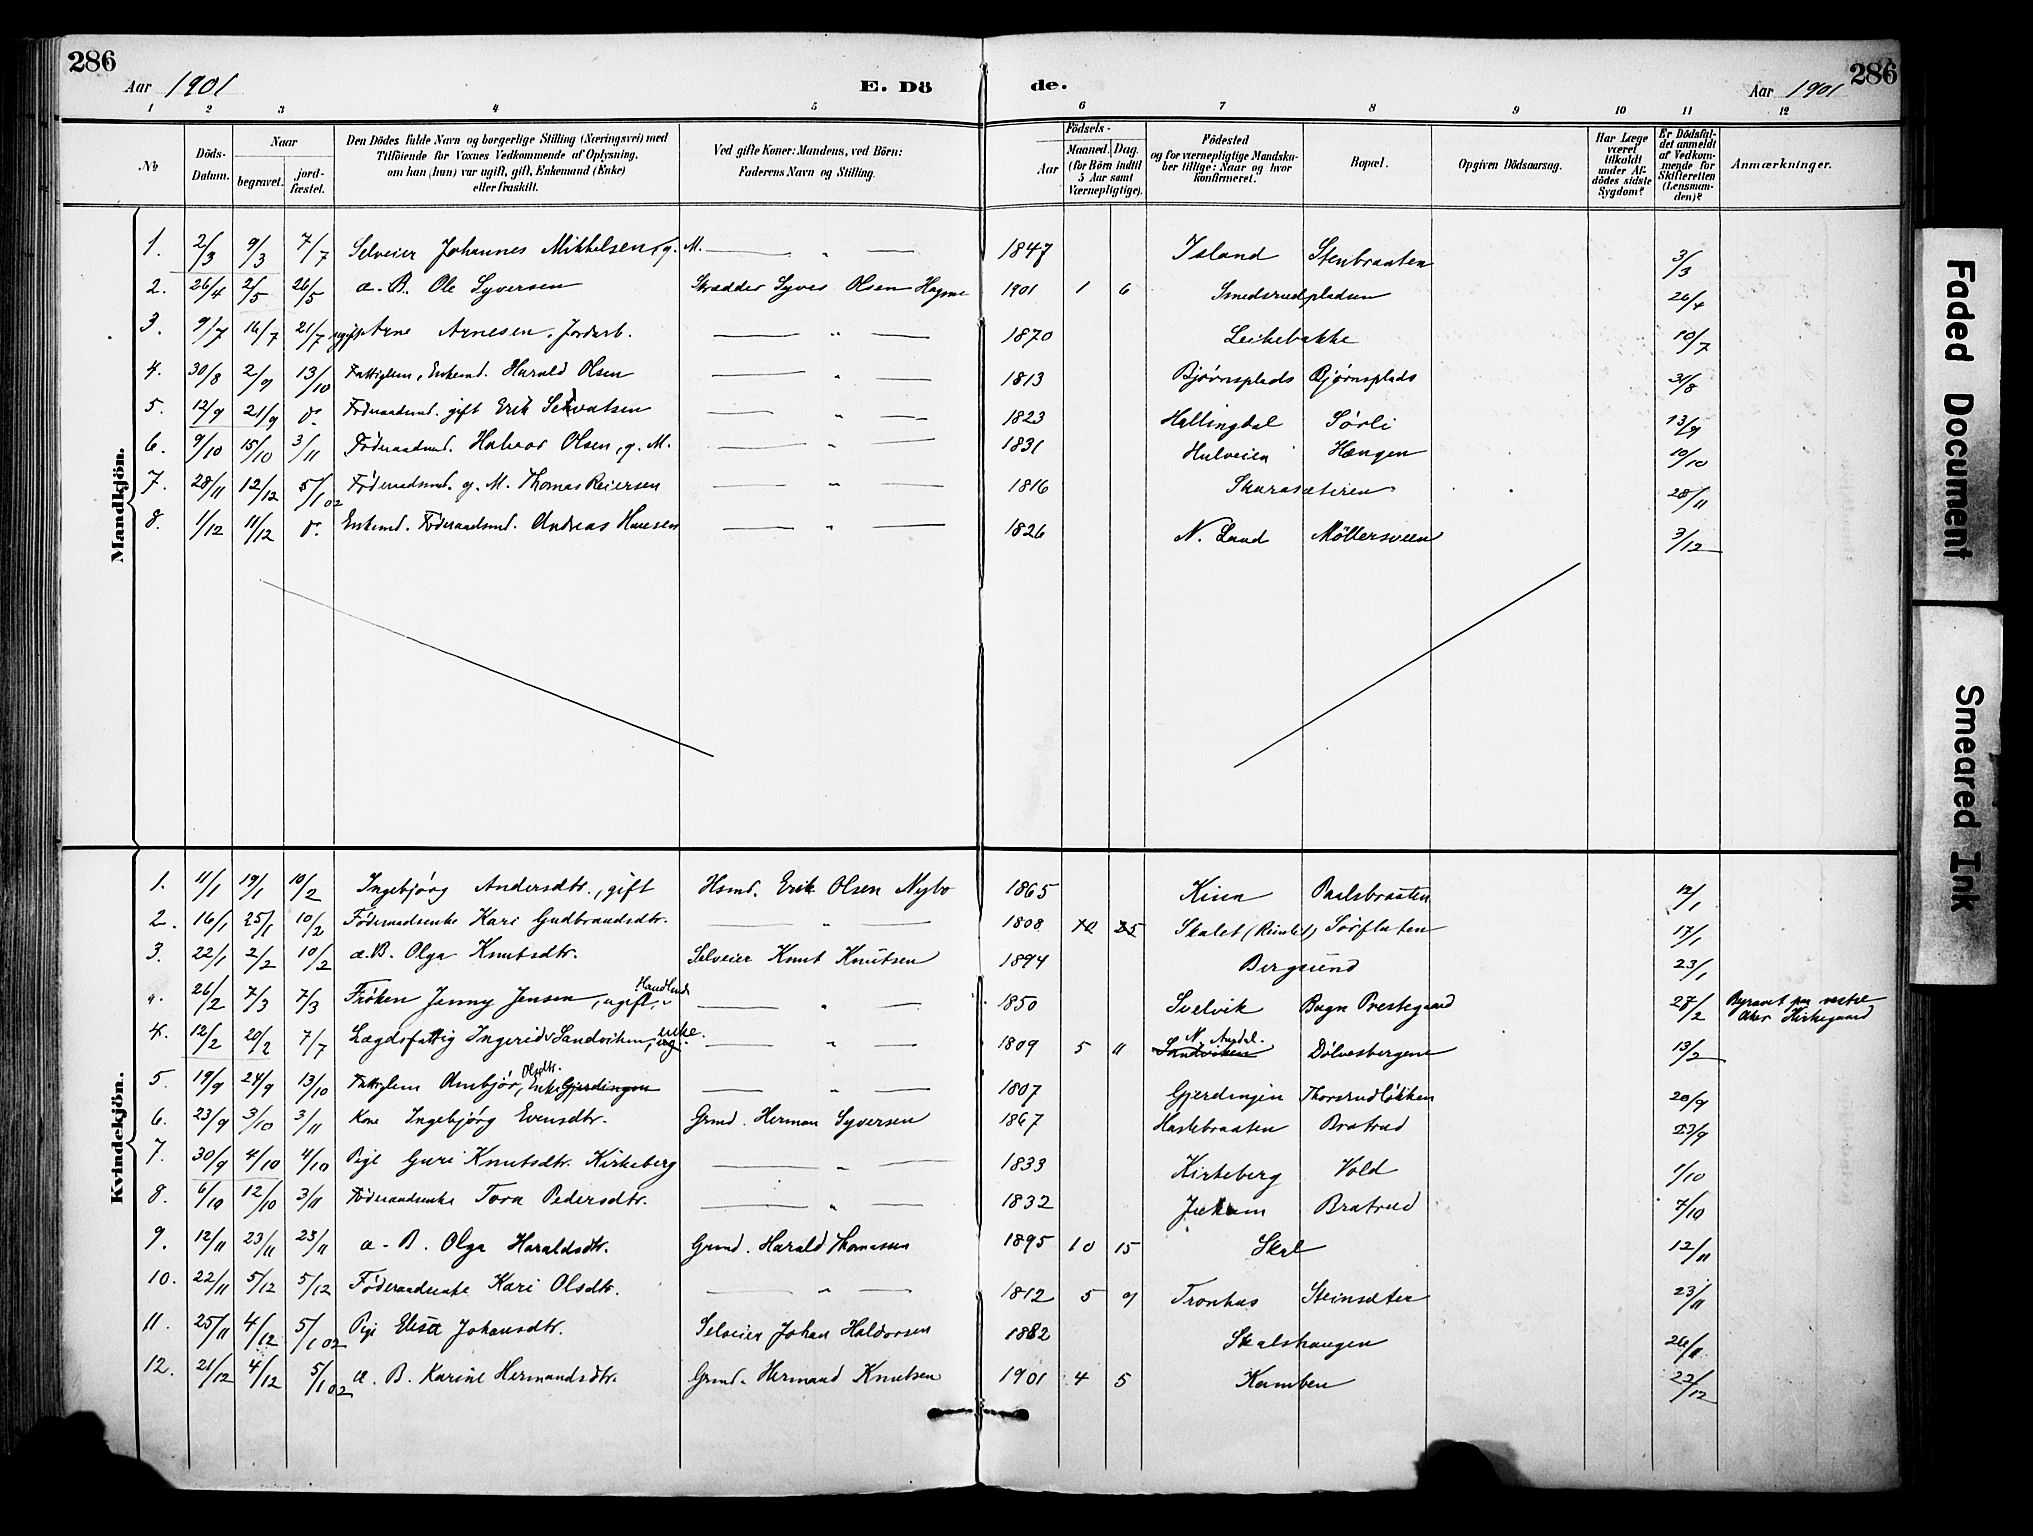 286
Aar 1901
E. Dö
de.
Aar 1901
286
1 2 3 4 5 6 7 8 9 10 11 12
No
Döds-Datum.
Naar
begravet.
jord-fæstet.
Den Dödes fulde Navn og borgerlige Stilling (Næringsvei) med
Tilföiende for Voxnes Vedkommende af Oplysning,
om han (hun) var ugift, gift, Enkemand (Enke)
eller fraskilt.
Ved gifte Koner: Mandens, ved Börn:
Faderens Navn og Stilling.
Födsels-
Aar
Maaned. Dag.
(for Börn indtil
5 Aar samt
Værnepligtige).
Födested
og for værnepligtige Mandska-
ber tillige: Naar og hvor
konfirmeret.
Bopæl.
Opgiven Dödsaarsag.
Har Læge
været
tilkaldt
under Af-
dödes sidste
Sygdom?
Er Dödsfal-
det anmeldt
af Vedkom-
mende for
Skifteretten
(Lensman-
den)?
Anmærkninger.
Mandkjön.
1. 2/3 9/3 7/7 Selveier Johannes Mikkelsen, g. M. — „ — 1847 Island Stenbraaten 3/3
2. 26/4 2/5 26/5 a. B. Ole Syversen Skrædder Syver Olsen 1901 1 6 Smedsrudpladsen 26/4
3. 9/7 16/7 21/7 ugift Arne Arnesen, Jordarb. — „ — 1870 Leikebakke 10/7
4. 30/8 2/9 13/10 Fattiglem, Enkemd. Harald Olsen — „ — 1813 Bjørnsplads Bjørnsplads 31/8
5. 12/9 21/9 do. Föderaadsmd. gift Erik — „ — 1823 Hallingdal Sørli 13/9
6. 9/10 15/10 3/11 Föderaadsmd. Halvor Olsen, g. M. — „ — 1831 Hulveien Hængen 10/10
7. 28/11 12/12 5/1 02 Föderaadsmd. g. M. Thomas Reiersen — „ — 1816 Skarasæteren 28/11
8. 1/12 11/12 do. Enkemd. Föderaadsmd. Andreas Hansen — „ — 1826 N. Land Möllersveen 3/12
Kvindekjön.
1. 11/1 19/1 10/2 Ingebjörg Andersdtr., gift Hsmd. Erik Olsen Nybo 1865 Kinn Paalsbraaten 12/1
2. 16/1 25/1 10/2 Föderaadsenke Kari Gudbrandsdtr. — „ — 1808 12 25 Skalet Sørflaten 17/1
3. 22/1 2/2 10/2 a. B. Olga Knutsdtr. Selveier Knut Knutsen 1894 Bergsund 23/1
26/2 7/3 7/3 Frøken Jenny Jensen, ugift, Handlende — „ — 1850 Svelvik Bagn Prestegaard 28/2 Begravet paa vestre
Aker Kirkegaard
4. 12/2 20/2 7/7 Lægdsfattig Ingerid Sandviken, enke. — „ — 1809 5 11 Sandviken N. Aurdal. Dölvesbergene 13/2
5. 19/9 24/9 13/10 Fattiglem Ambjør Olsdtr., Enke Gjerdingen — „ — 1807 Gjerdingen Thorsrudløkken 20/9
6. 23/9 3/10 3/11 Kone Ingebjörg Evensdtr. Grmd. Herman Syversen 1867 Haslebraaten Bratrud 23/9
7. 30/9 4/10 4/10 Pige Guri Knutsdtr. Kirkeberg — „ — 1833 Kirkeberg Vold 1/10
8. 6/10 12/10 3/11 Föderaadsenke Tora Pedersdtr. — „ — 1832 Bratrud 7/10
9. 12/11 23/11 23/11 a. B. Olga Haraldsdtr. Grmd. Harald Thomassen 1895 10 15 Skal 12/11
10. 22/11 5/12 5/12 Föderaadsenke Kari Olsdtr. — „ — 1812 5 9 Tronhus Steinsæter 23/11
11. 25/11 4/12 5/1 02 Pige Elise Johansdtr. Selveier Johan Haldorsen 1882 Skalshaugen 26/11
12. 21/12 4/12 5/1 02 a. B. Karine Hermandsdtr. Grmd. Hermand Knutsen 1901 4 5 Kamben 22/12
Faded Document
Smeared Ink